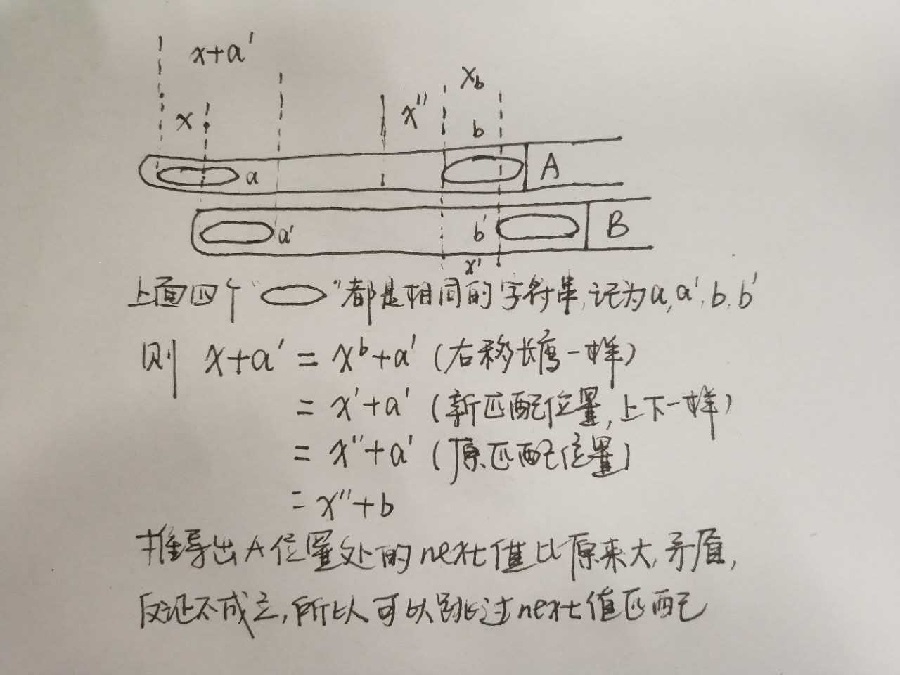 x+a'
x
x''
x_b
b
a
A
a'
b'
B
x'
上面四个“⬭”都是相同的字符串,记为a,a',b,b'
则 x+a' = x^b+a' (右移长度一样)
= x'+a' (新匹配位置,上下一样)
= x''+a' (原匹配位置)
= x''+b
推导出A位置处的next值比原来大,矛盾,
反证不成立,所以可以跳过next值匹配